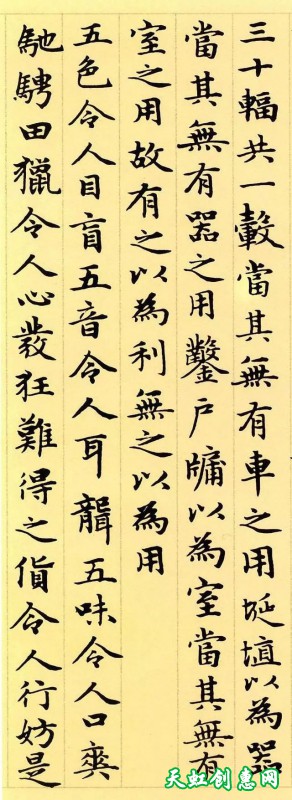 三十輻共一轂當其無有車之用埏埴以為器
當其無有器之用鑿户牖以為室當其無有
室之用故有之以為利無之以為用
五色令人目盲五音令人耳聾五味令人口爽
馳騁田獵令人心發狂難得之貨令人行妨是
天虹创惠网